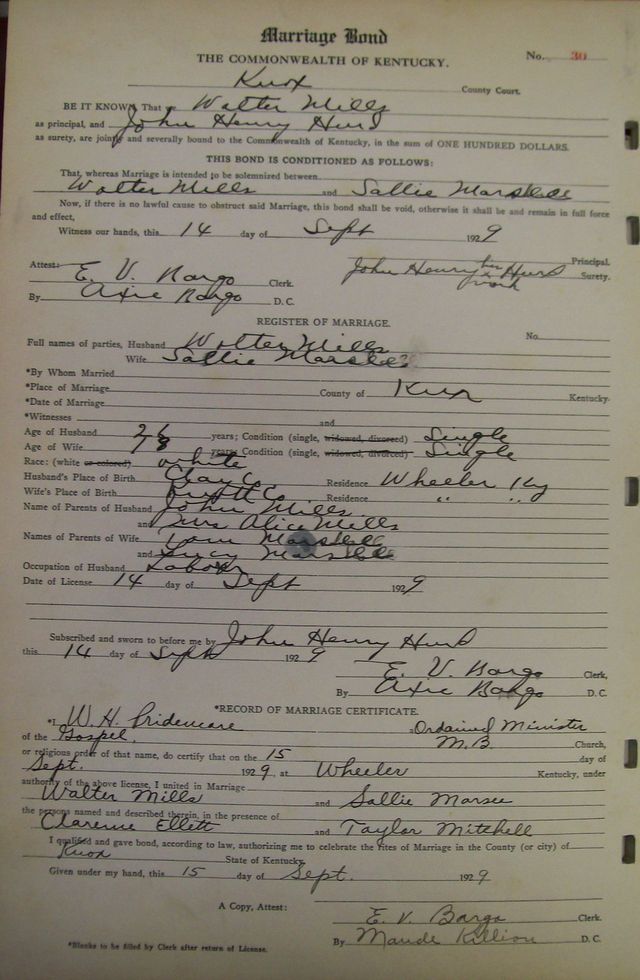 Marriage Bond
THE COMMONWEALTH OF KENTUCKY.
No. 30
Knox County Court.
BE IT KNOWN, That Walter Mills
as principal, and John Henry Hurd
as surety, are jointly and severally bound to the Commonwealth of Kentucky, in the sum of ONE HUNDRED DOLLARS.
THIS BOND IS CONDITIONED AS FOLLOWS:
That, whereas Marriage is intended to be solemnized between
Walter Mills and Sallie
Now, if there is no lawful cause to obstruct said Marriage, this bond shall be void, otherwise it shall be and remain in full force
and effect,
Witness our hands, this 14 day of Sept 1929
Principal.
Attest: E. V. Bargo Clerk. John Henry his x mark Hurd Surety.
By Axie Bargo D. C.
REGISTER OF MARRIAGE.
No.
Full names of parties, Husband Walter Mills
Wife Sallie
*By Whom Married
*Place of Marriage County of Knox Kentucky.
*Date of Marriage
*Witnesses and
Age of Husband years; Condition (single, widowed, divorced) Single
Age of Wife years; Condition (single, widowed, divorced) Single
Race: (white or colored) white
Husband's Place of Birth Clay Co Residence Wheeler Ky
Wife's Place of Birth Co Residence " "
Name of Parents of Husband John Mills
and Mrs Alice Mills
Names of Parents of Wife
and
Occupation of Husband Labor
Date of License 14 day of Sept 1929
Subscribed and sworn to before me by John Henry Hurd
this 14 day of Sept 1929
E. V. Bargo Clerk,
By Axie Bargo D. C.
*RECORD OF MARRIAGE CERTIFICATE.
*I W. H. a Ordained Minister
of the Gospel M. B. Church,
or religious order of that name, do certify that on the 15 day of
Sept. 1929, at Wheeler Kentucky, under
authority of the above license, I united in Marriage
Walter Mills and Sallie Marsee
the persons named and described therein, in the presence of
Clarence Ellett and Taylor Mitchell
I qualified and gave bond, according to law, authorizing me to celebrate the rites of Marriage in the County (or city) of
Knox State of Kentucky.
Given under my hand, this 15 day of Sept. 1929
A Copy, Attest: E. V. Bargo Clerk.
By Maude Killion D. C.
*Blanks to be filled by Clerk after return of License.